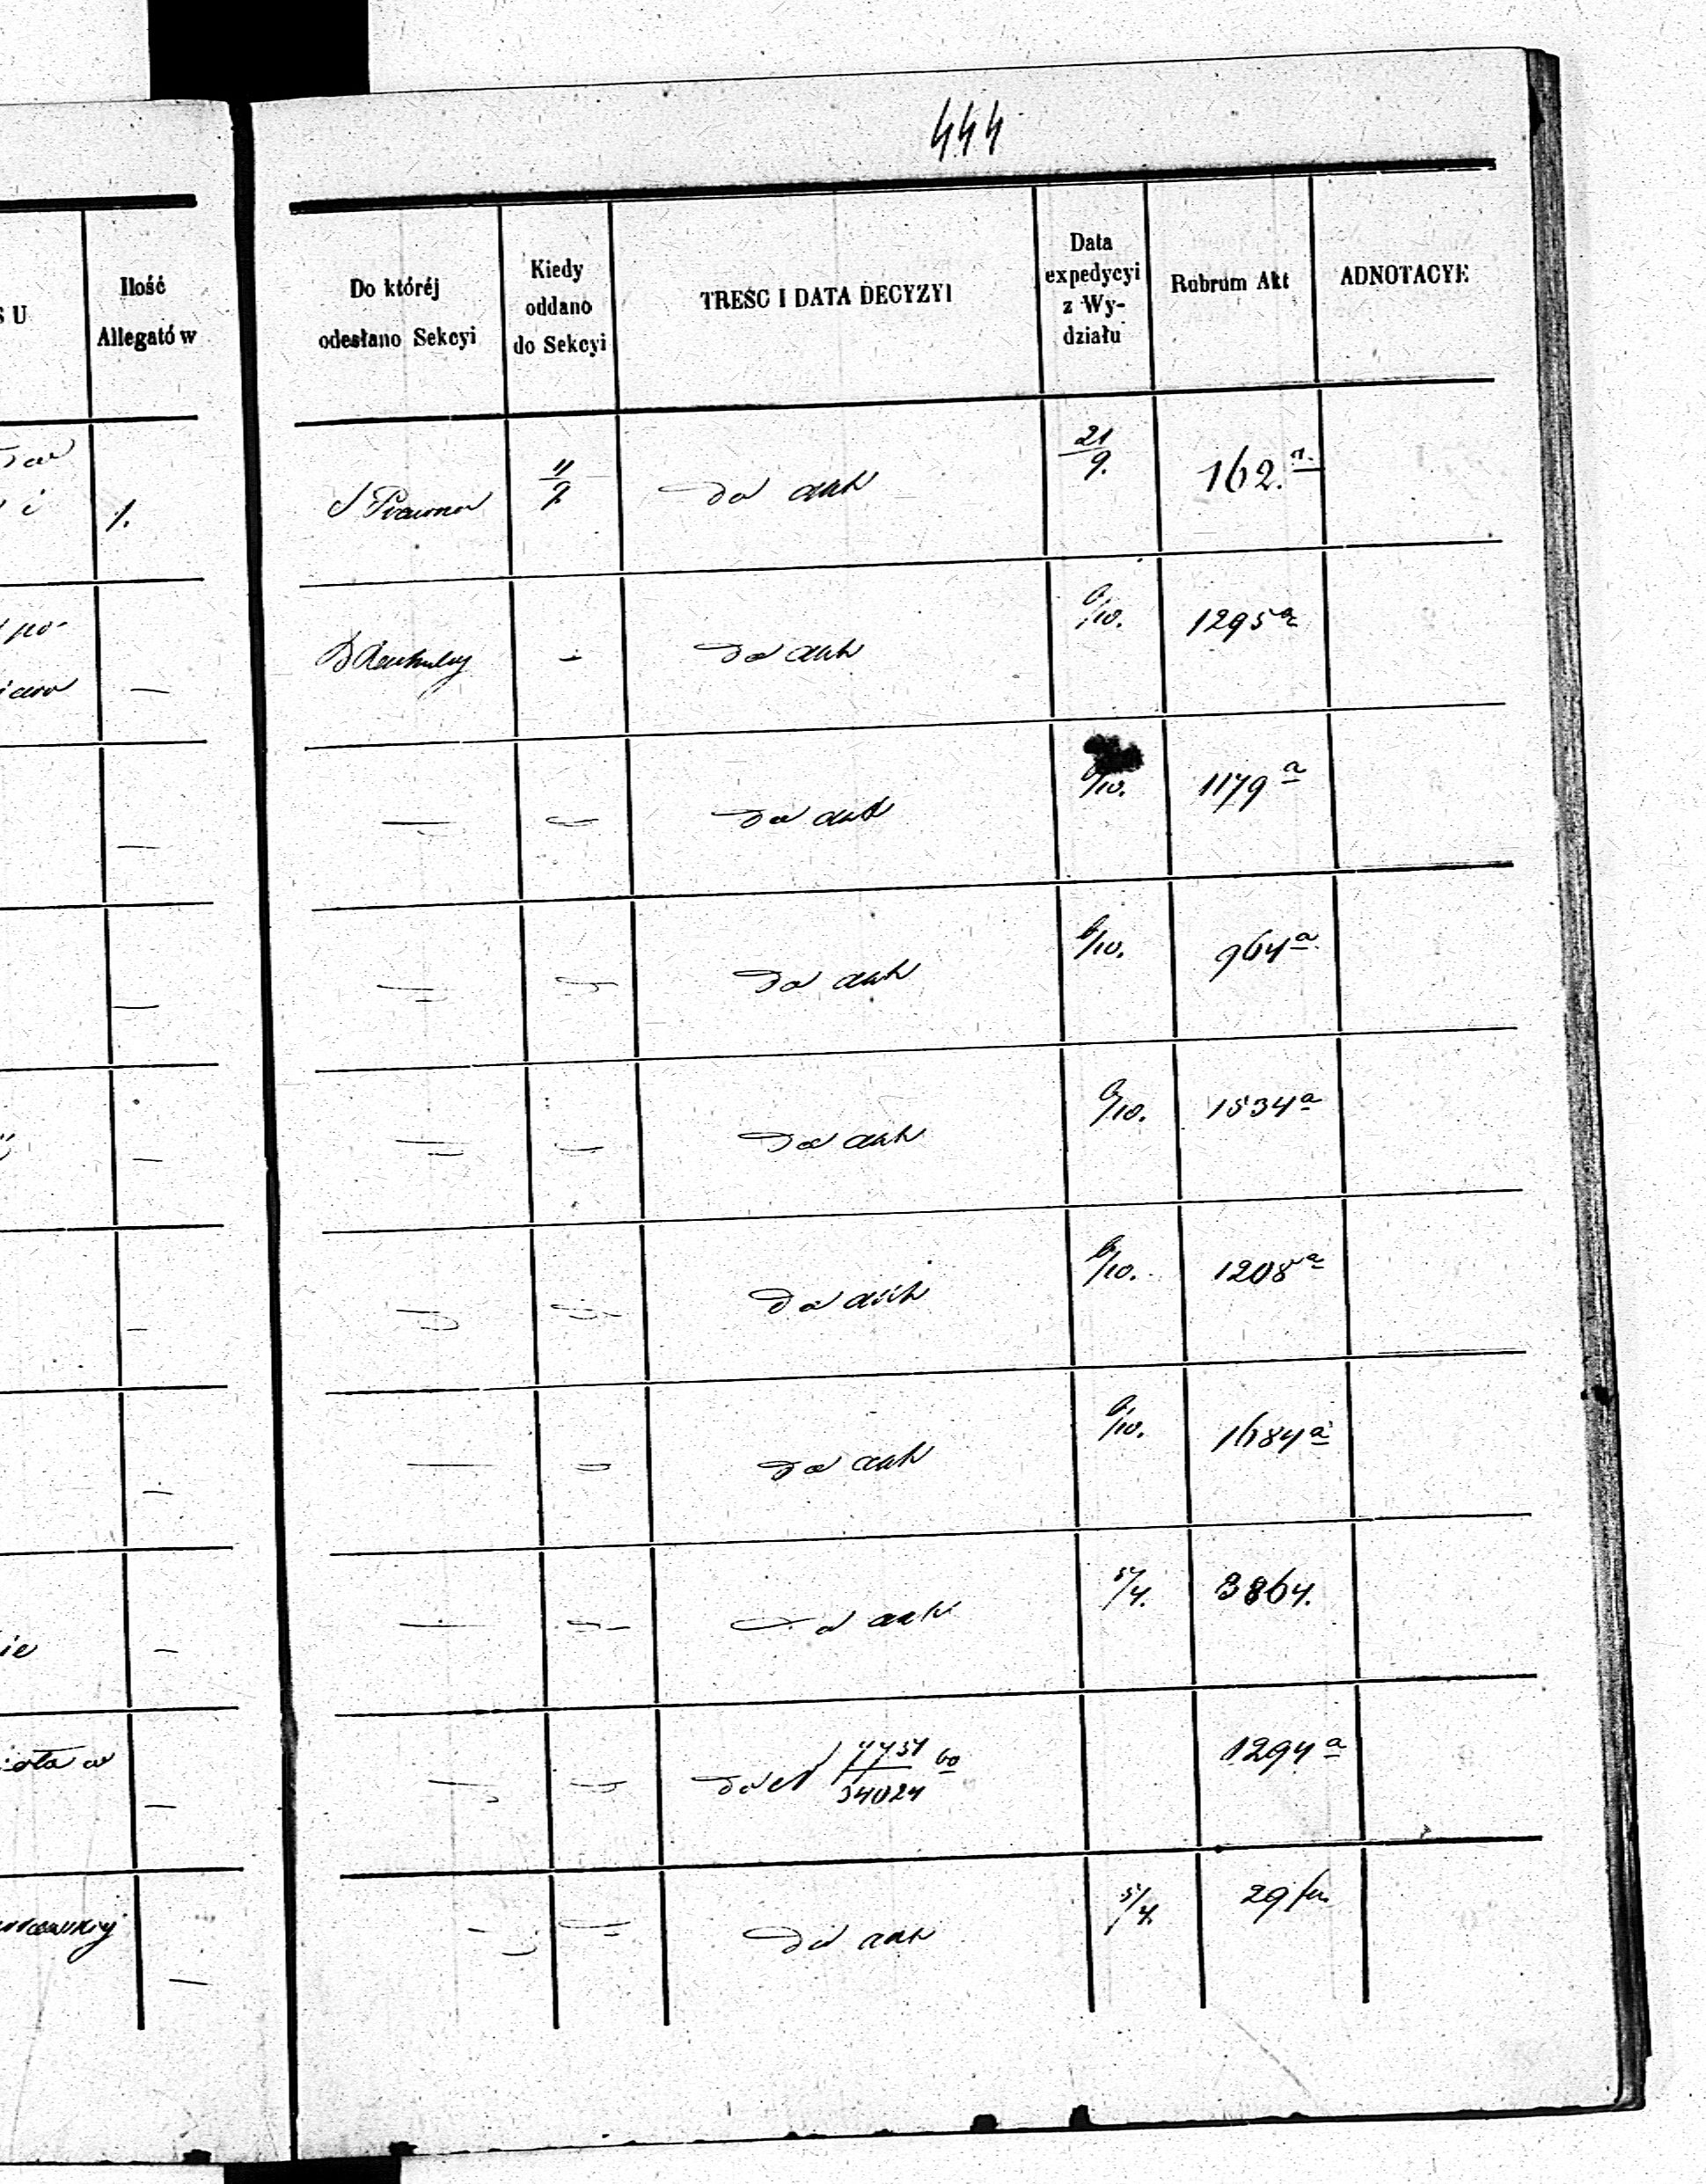 444
S U
Ilość
Allegatów
Do któréj
odesłano Sekcyi
Kiedy
oddano
do Sekcyi
TREŚC I DATA DECYZYI
Data
expedycyi
z Wy-
działu
Rubrum Akt
ADNOTACYE
i 1.
Prawna 11/9 do akt 21/9. 162.a
po-
— do akt 6/10. 1295a
— — — do akt 6/10. 1179a
— — — do akt 6/10. 964a
— — — do akt 6/10. 1534a
— — — do akt 6/10. 1208a
— — — do akt 6/10. 1684a
ie — — — do akt 5/4. 3864.
— — — do 34024 1294a
— — — do akt 5/4. 29